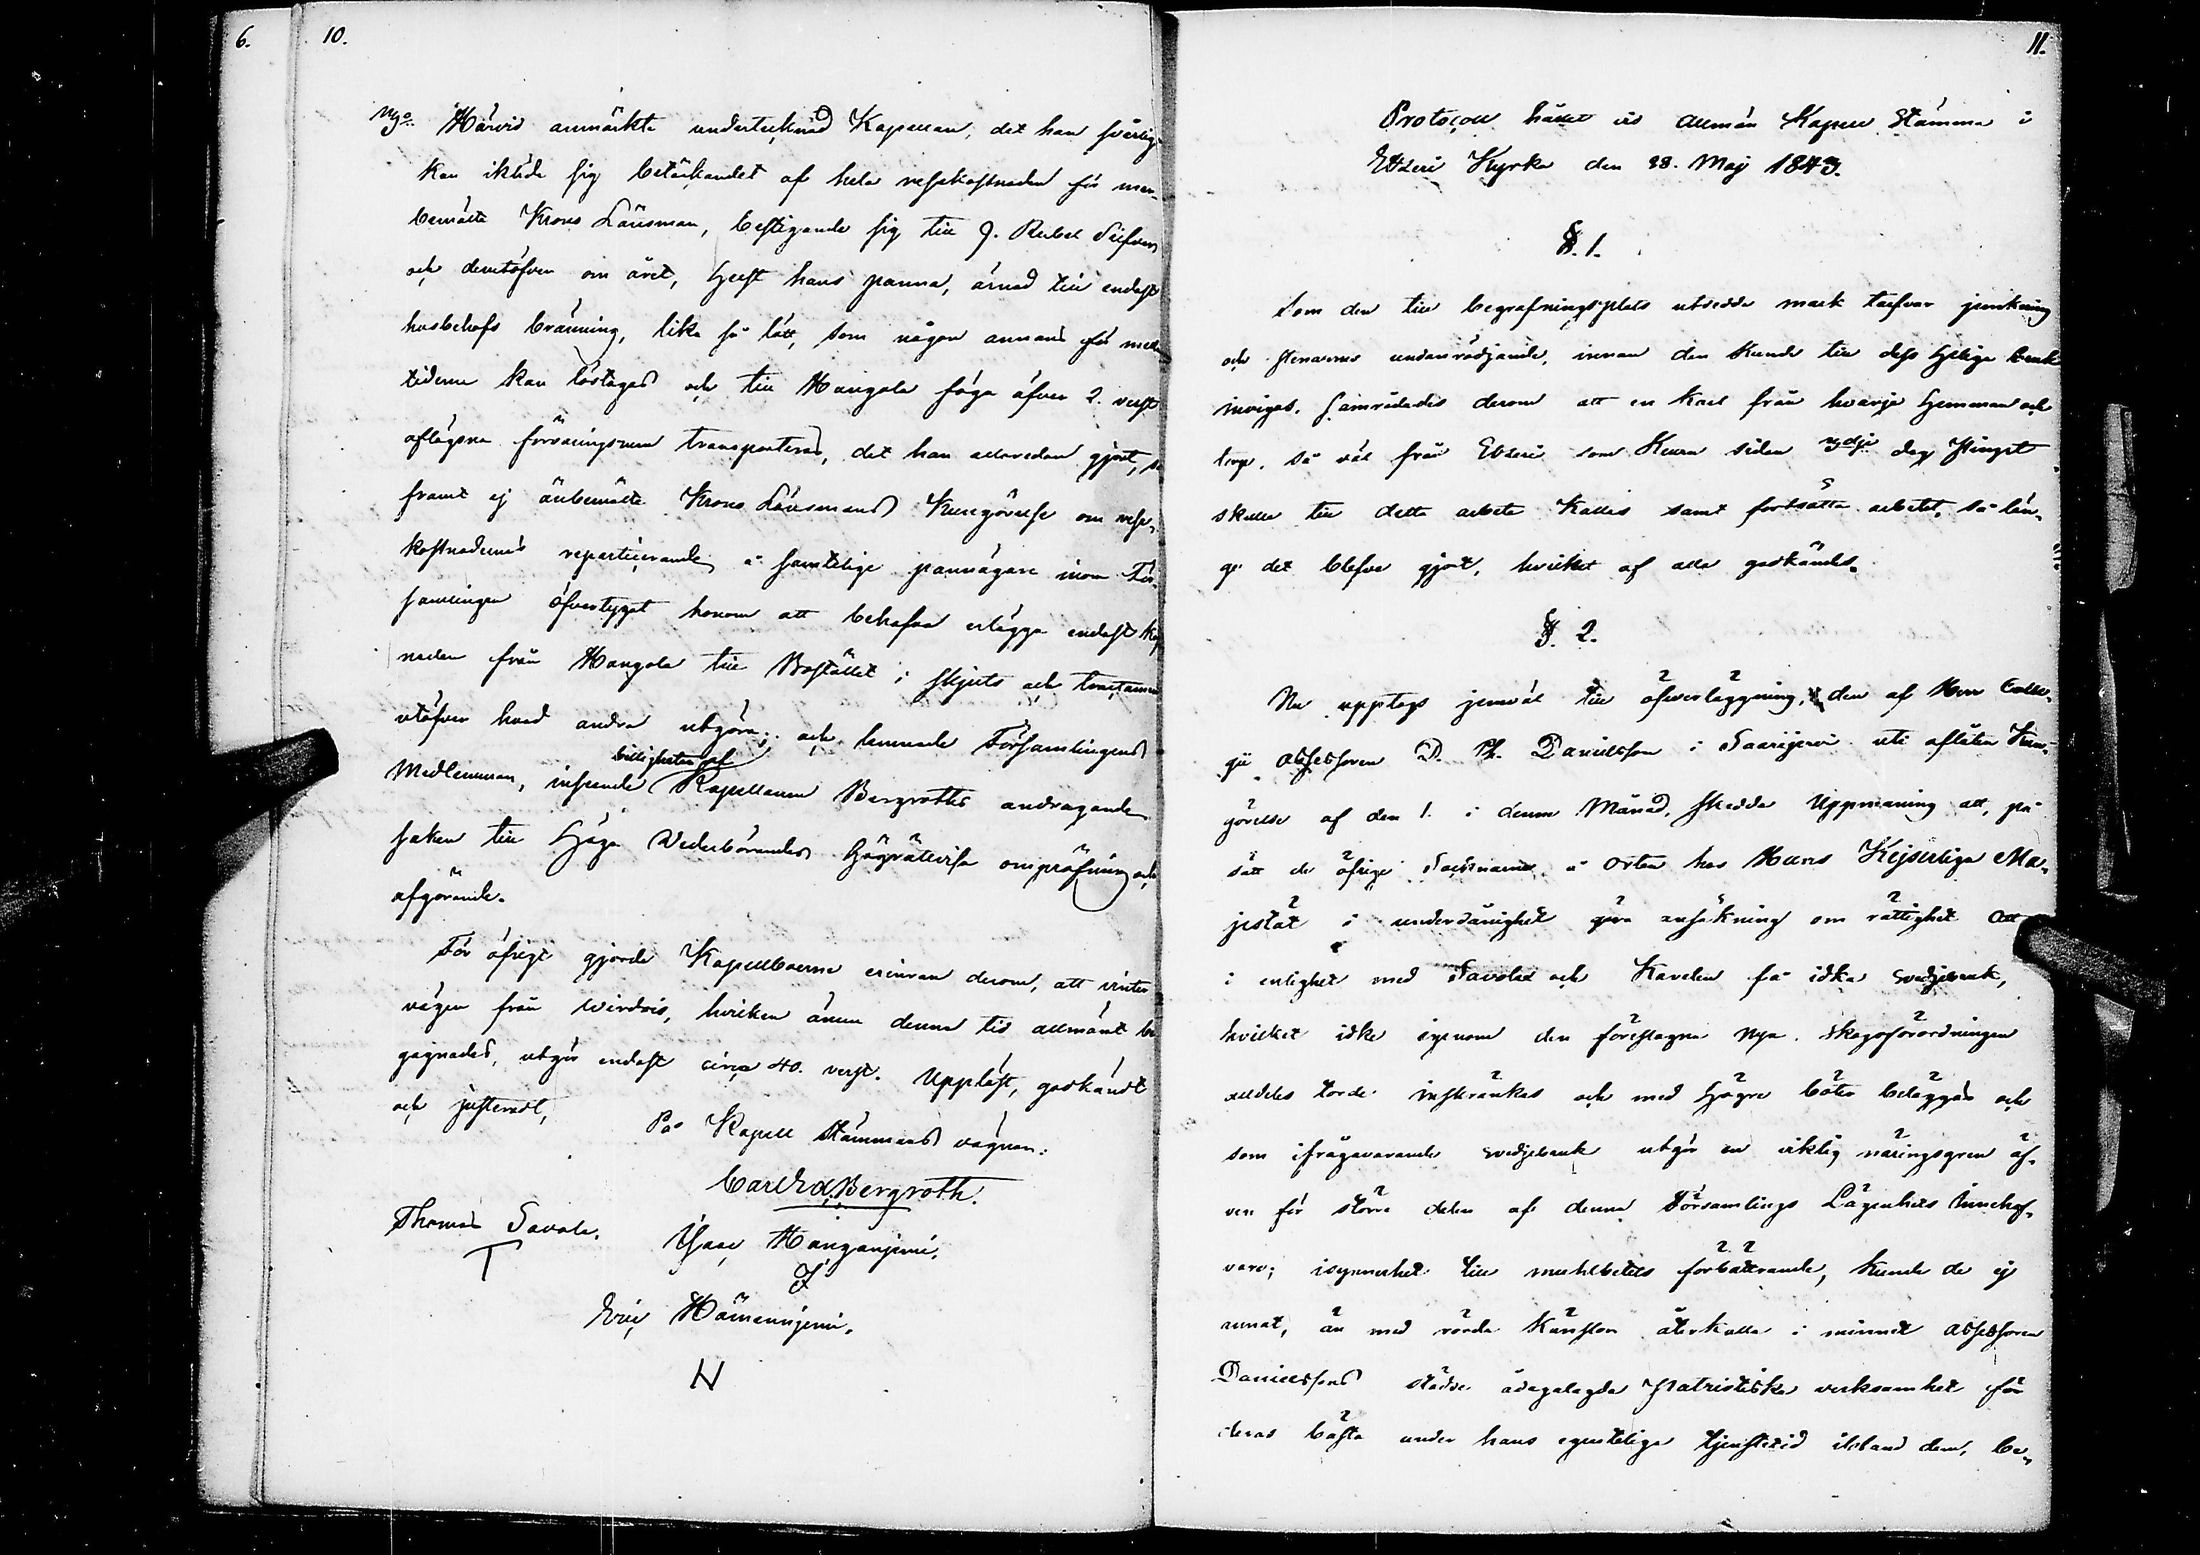 6.
10.
Härvid anmärkte undertecknad Kapellan, det han
kan ikläda sig betäckandet af hela resekostnaden för
bemälte Krono Länsman, 
och derutöfver om året, helst hans panna, ärnad till endast
husbehofs bränning, lika så lätt, som någon annans
tiderna kan löstagas och till Mangola föga öfver 2. verst
aflägsna förvaringsrum transporteras, det han allaredan gjort, så
framt ej änbemälte Krono Länsmans Kungörelse om rese-
kostnadernas reparticerande å samtelige pannägare inom För-
samlingen öfvertygat honom att behöfva erlägga endast
naden från Mangola till Bostället i skjuts och
utöfver hvad andra utgöra; och lemnade Församlingens
Medlemmar, inseende billigheten af Kapellanen Bergroths andragande
saken till Höga Vederbörandes Högrättvisa ompröfning och
afgörande.
För öfrigt gjorde Kapellboerne erinran derom, att vinter
vägen från Wirdois, hvilken ännu denna tid allmänt be
gagnades, utgör endast circa 40. verst. Uppläst, godkändt
och justeradt,
På Kapell Stämmans vägnar:
Carl Bergroth.
Thomas Savola.
T
Isaac
Eric Hämeenniemi.
11.
Protocoll hållet vid allmän Kapell Stämma i
Etseri Kyrka den 28. Maj 1843.
§. 1.
Som den till begrafningsplats utsedda mark tarfvar jemkning
och stenarnes undanrödjande, innan den kunde till dess heliga bruk
invigas, samrådades derom att en karl från hvarje hemman och
torp, så väl från Etseri som sidan dag Pingst
skulle till detta arbete kallas samt fortsätta arbetet, så län-
ge det blefve gjort, hvilket af alla godkändes.
§. 2.
Nu upptogs jemväl till öfverläggning, den af Herr Colle-
gii Assessoren D. Danielsson i Saarijervi uti aflåten Kun-
görelse af den 1. i denne Månad, skedda Uppmaning att, på
sätt de öfrige Socknarne å orten hos Hans Kejserliga Ma-
jestät i underdånighet göra ansökning om rättighet att
i enlighet med Savolax och Karelen få idka svedjebruk,
hvilket idke igenom den föreslagna Nya Skogsförordningen
alldeles torde inskränkas och med högre böter beläggas och
som ifrågavarande svedjebruk utgör en viktig näringsgren äf-
ven för större delen af denna Församlings Lägenhets Innehaf-
vare; isynnerhet till muhlbetets förbättrande, kunde de ej
annat, än med rörda känslor återkalla i minnet Assessoren
Danielssons städse ådagalagda Patriotiska verksamhet för
deras bästa under hans egentliga tjenstetid ibland dem, be-